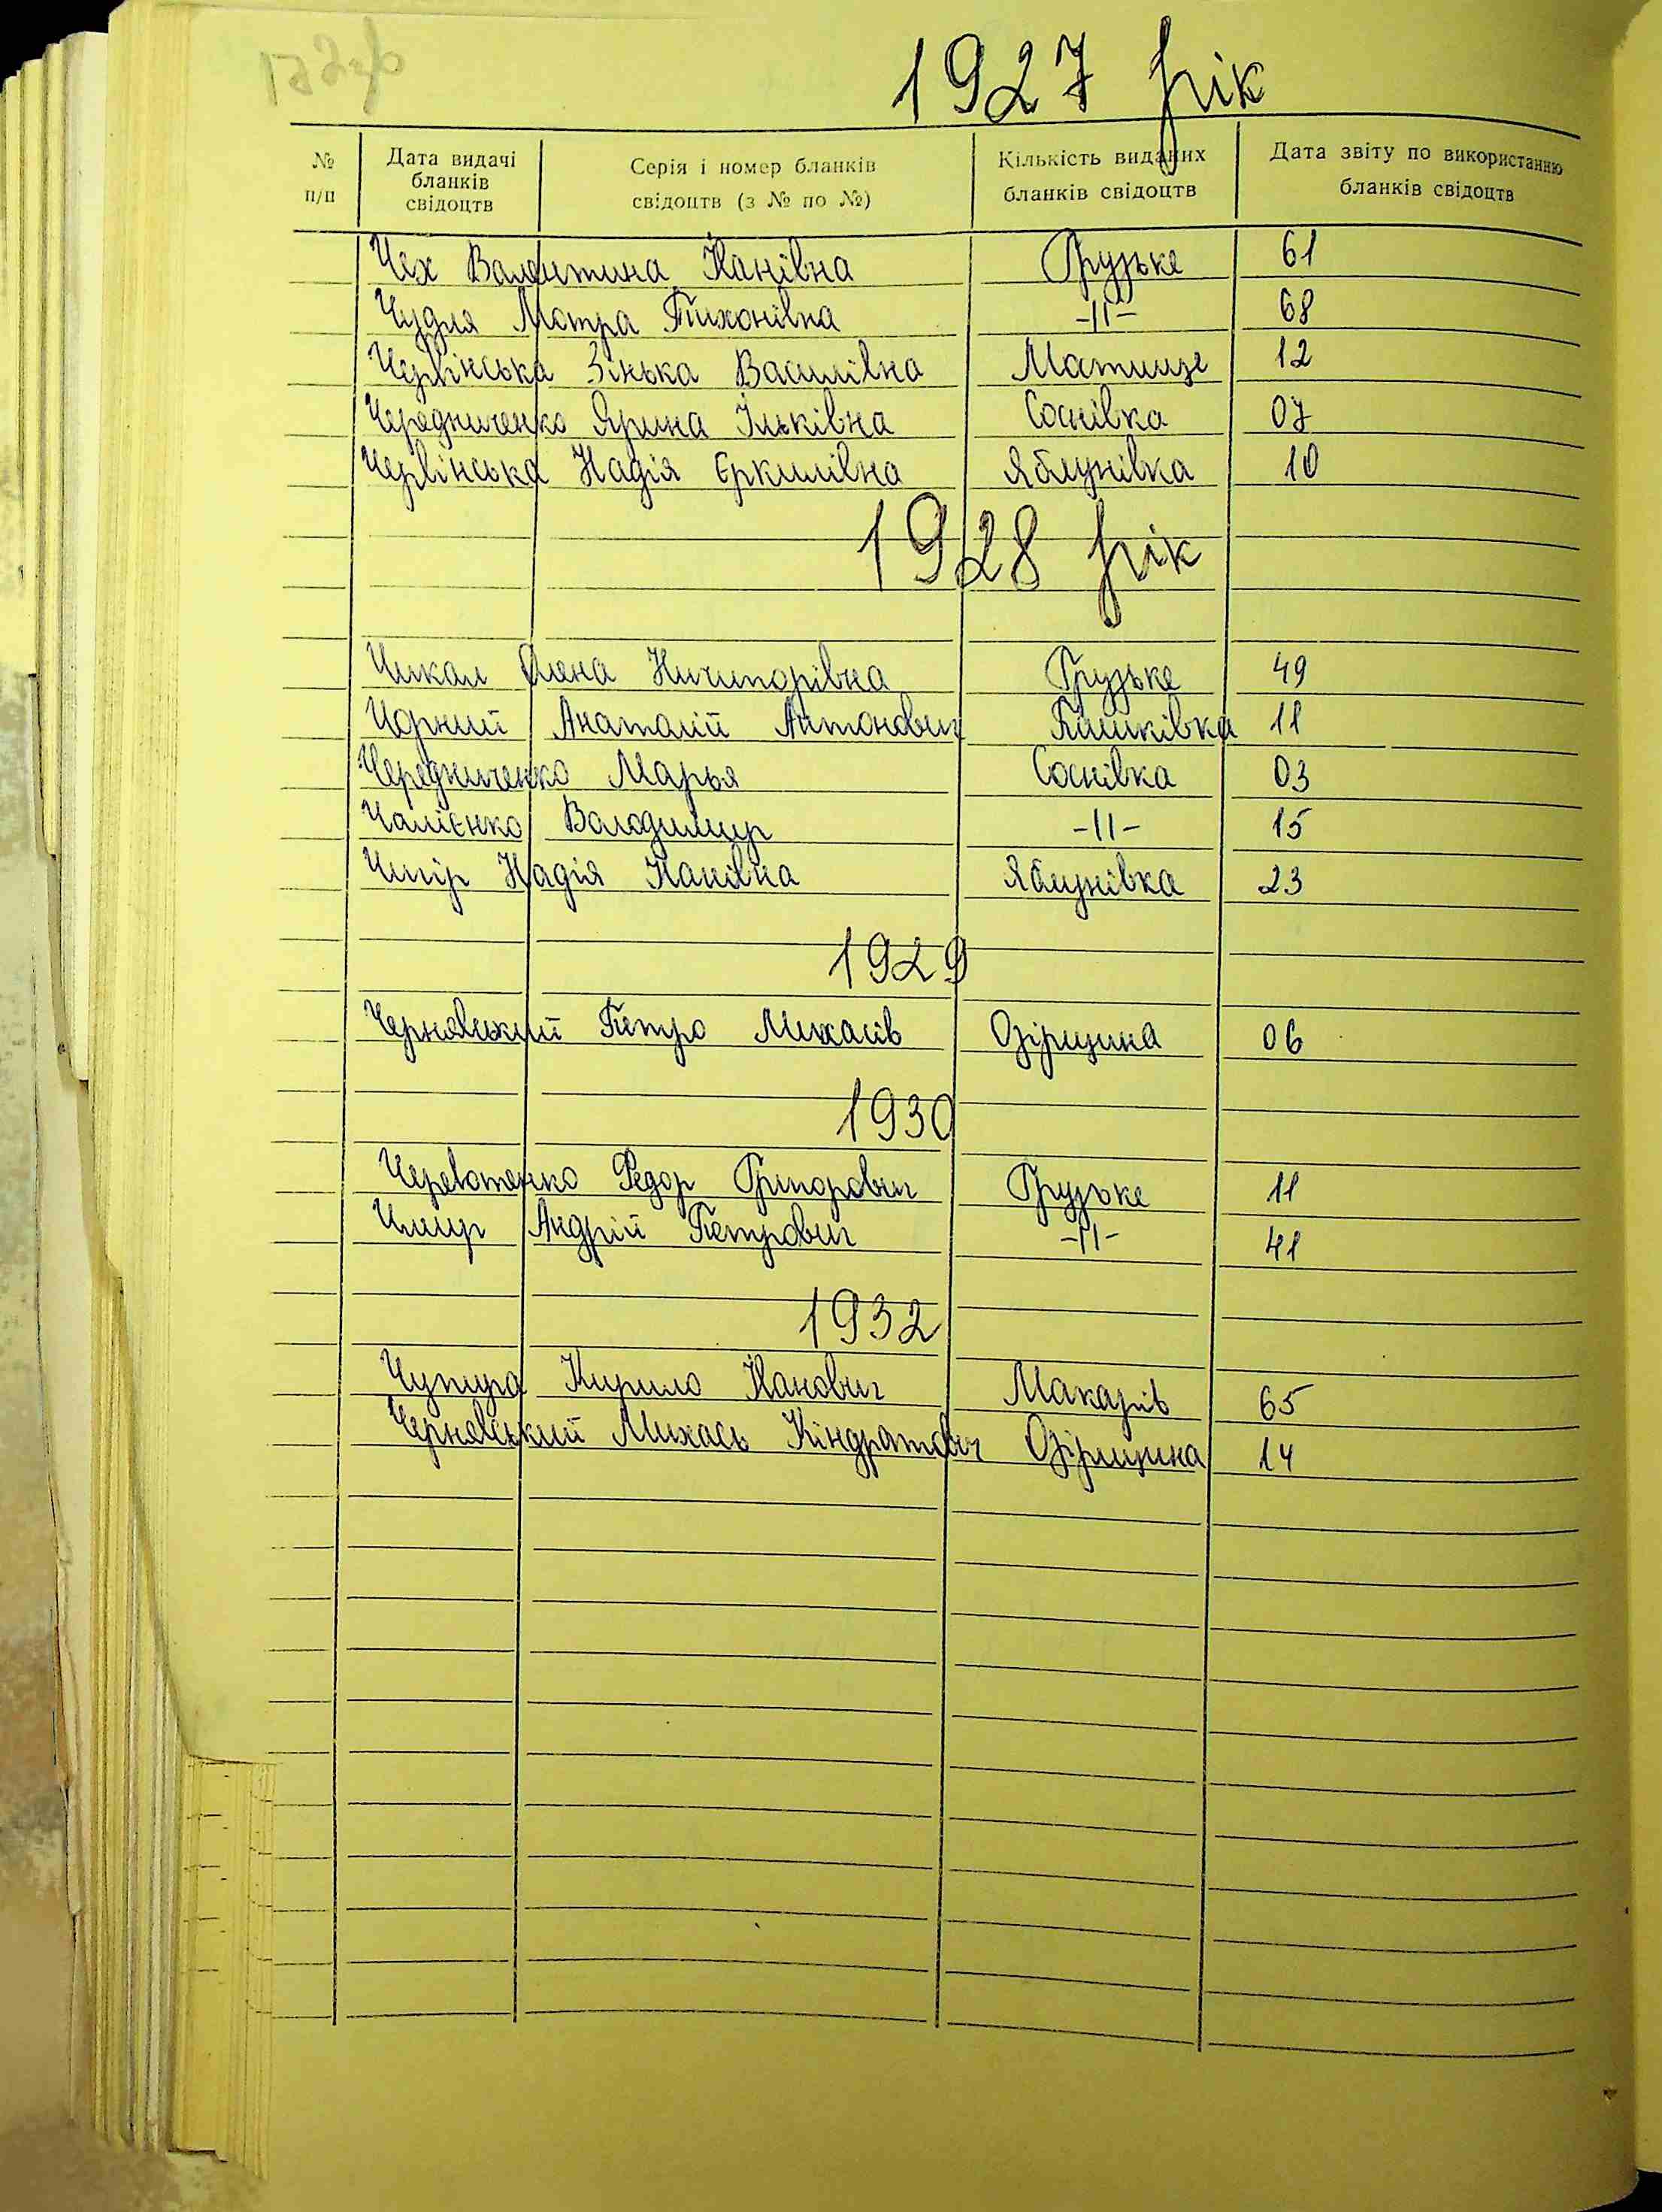 1927 рік
№ п/п
Дата видачі бланків свідоцтв
Серія і номер бланків свідоцтв (з № по №)
Кількість виданих бланків свідоцтв
Дата звіту по використанню бланків свідоцтв
Чех Валентина Іванівна Грузьке 61
Чудля Мотра Тихонівна -||- 68
Червінська Зінька Василівна Мотижe 12
Чередниченко Ярина Ільківна Соснівка 07
Червінська Надія Єркилівна Яблунівка 10
1928 рік
Чикал Олена Ничипорівна Грузьке 49
Чорний Анатолій Антонович Пашківка 11
Чередниченко Марья Соснівка 03
Чалієнко Володимир -||- 15
Чмір Надія Іванівна Яблунівка 23
1929
Чернявський Петро Михасів Озірщина 06
1930
Череватенко Федор Григорович Грузьке 11
Чмир Андрій Петрович -||- 41
1932
Чупира Кирило Іванович Макарів 65
Чернявський Михась Кіндратович Озірщина 14